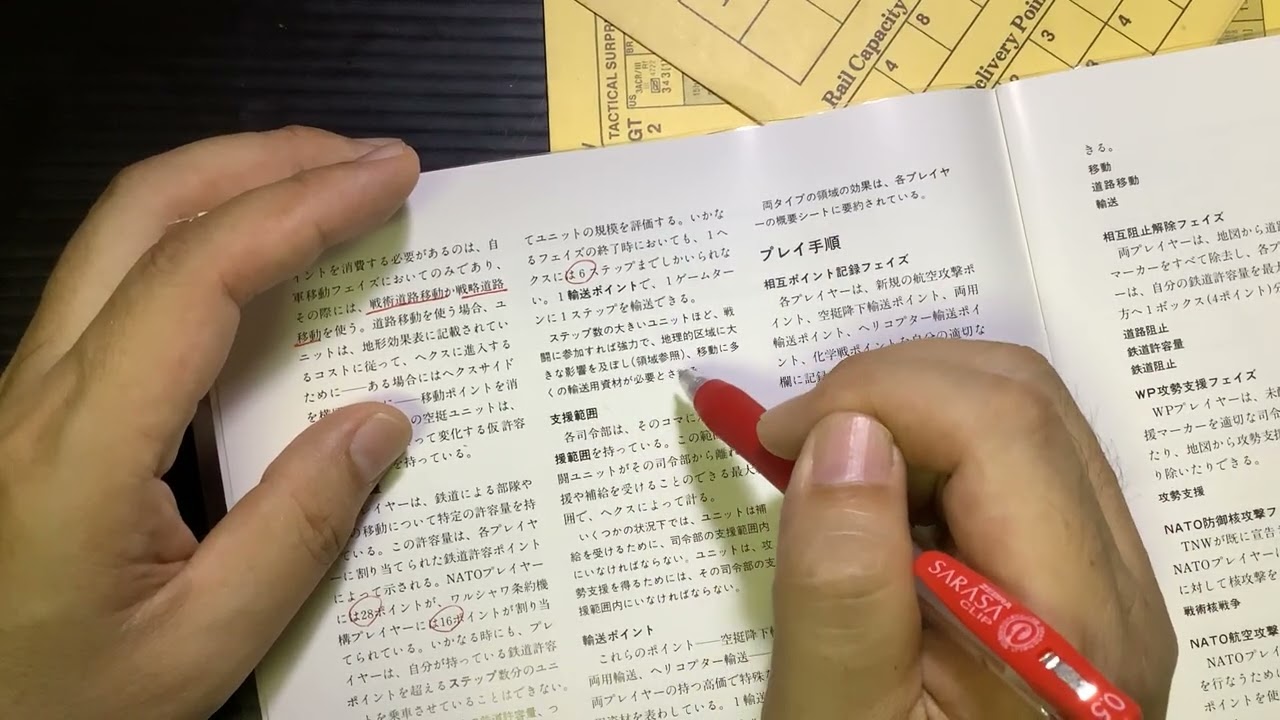 TACTICAL SURPR
GT
2
US
3ACR/10
343[1
BR
Rail Capacity
4
8
elivery Poin
3
4
イントを消費する必要があるのは、自
軍移動フェイズにおいてのみであり、
その際には、戦術道路移動か戦略道路
移動を使う。道路移動を使う場合、ユ
ニットは、地形効果表に記載されてい
るコストに従って、ヘクスに進入する
ために──ある場合にはヘクスサイド
を横
──移動ポイントを消
の空挺ユニットは、
って変化する仮許容
を持っている。
イヤーは、鉄道による部隊や
の移動について特定の許容量を持
ている。この許容量は、各プレイヤ
ーに割り当てられた鉄道許容ポイント
によって示される。NATOプレイヤー
には28ポイントが、ワルシャワ条約機
構プレイヤーには16ポイントが割り当
てられている。いかなる時にも、プレ
イヤーは、自分が持っている鉄道許容
ポイントを超えるステップ数分のユニ
ットを乗車させていることはできない。
てユニットの規模を評価する。いかな
るフェイズの終了時においても、1ヘ
クスには6ステップまでしかいられな
い。1輸送ポイントで、1ゲームター
ンに1ステップを輸送できる。
ステップ数の大きいユニットほど、戦
闘に参加すれば強力で、地理的区域に大
きな影響を及ぼし(領域参照)、移動に多
くの輸送用資材が必要とさ
支援範囲
各司令部は、そのコマに
援範囲を持っている。この範
闘ユニットがその司令部から離れ
援や補給を受けることのできる最大
囲で、ヘクスによって計る。
いくつかの状況下では、ユニットは補
給を受けるために、司令部の支援範囲内
にいなければならない。ユニットは、攻
勢支援を得るためには、その司令部の支
援範囲内にいなければならない。
輸送ポイント
これらのポイント──空挺降下
両用輸送、ヘリコプター輸送──
両プレイヤーの持つ高価で特殊な
資材を表わしている。1輸送
両タイプの領域の効果は、各プレイヤ
ーの概要シートに要約されている。
プレイ手順
相互ポイント記録フェイズ
各プレイヤーは、新規の航空攻撃ポ
イント、空挺降下輸送ポイント、両用
輸送ポイント、ヘリコプター輸送ポイ
ント、化学戦ポイントを自分の適切な
欄に記録
きる。
移動
道路移動
輸送
相互阻止解除フェイズ
両プレイヤーは、地図から道
マーカーをすべて除去し、各プ
ーは、自分の鉄道許容量を最大
方へ1ボックス(4ポイント)分
道路阻止
鉄道許容量
鉄道阻止
WP攻勢支援フェイズ
WPプレイヤーは、未
援マーカーを適切な司令
たり、地図から攻勢支
り除いたりできる。
攻勢支援
NATO防御核攻撃フ
TNWが既に宣告
NATOプレイヤー
に対して核攻撃を
戦術核戦争
NATO航空攻撃
NATOプレイ
を行なうために
ポイントを使
ZEBRA
SARASA
CLIP
0.5